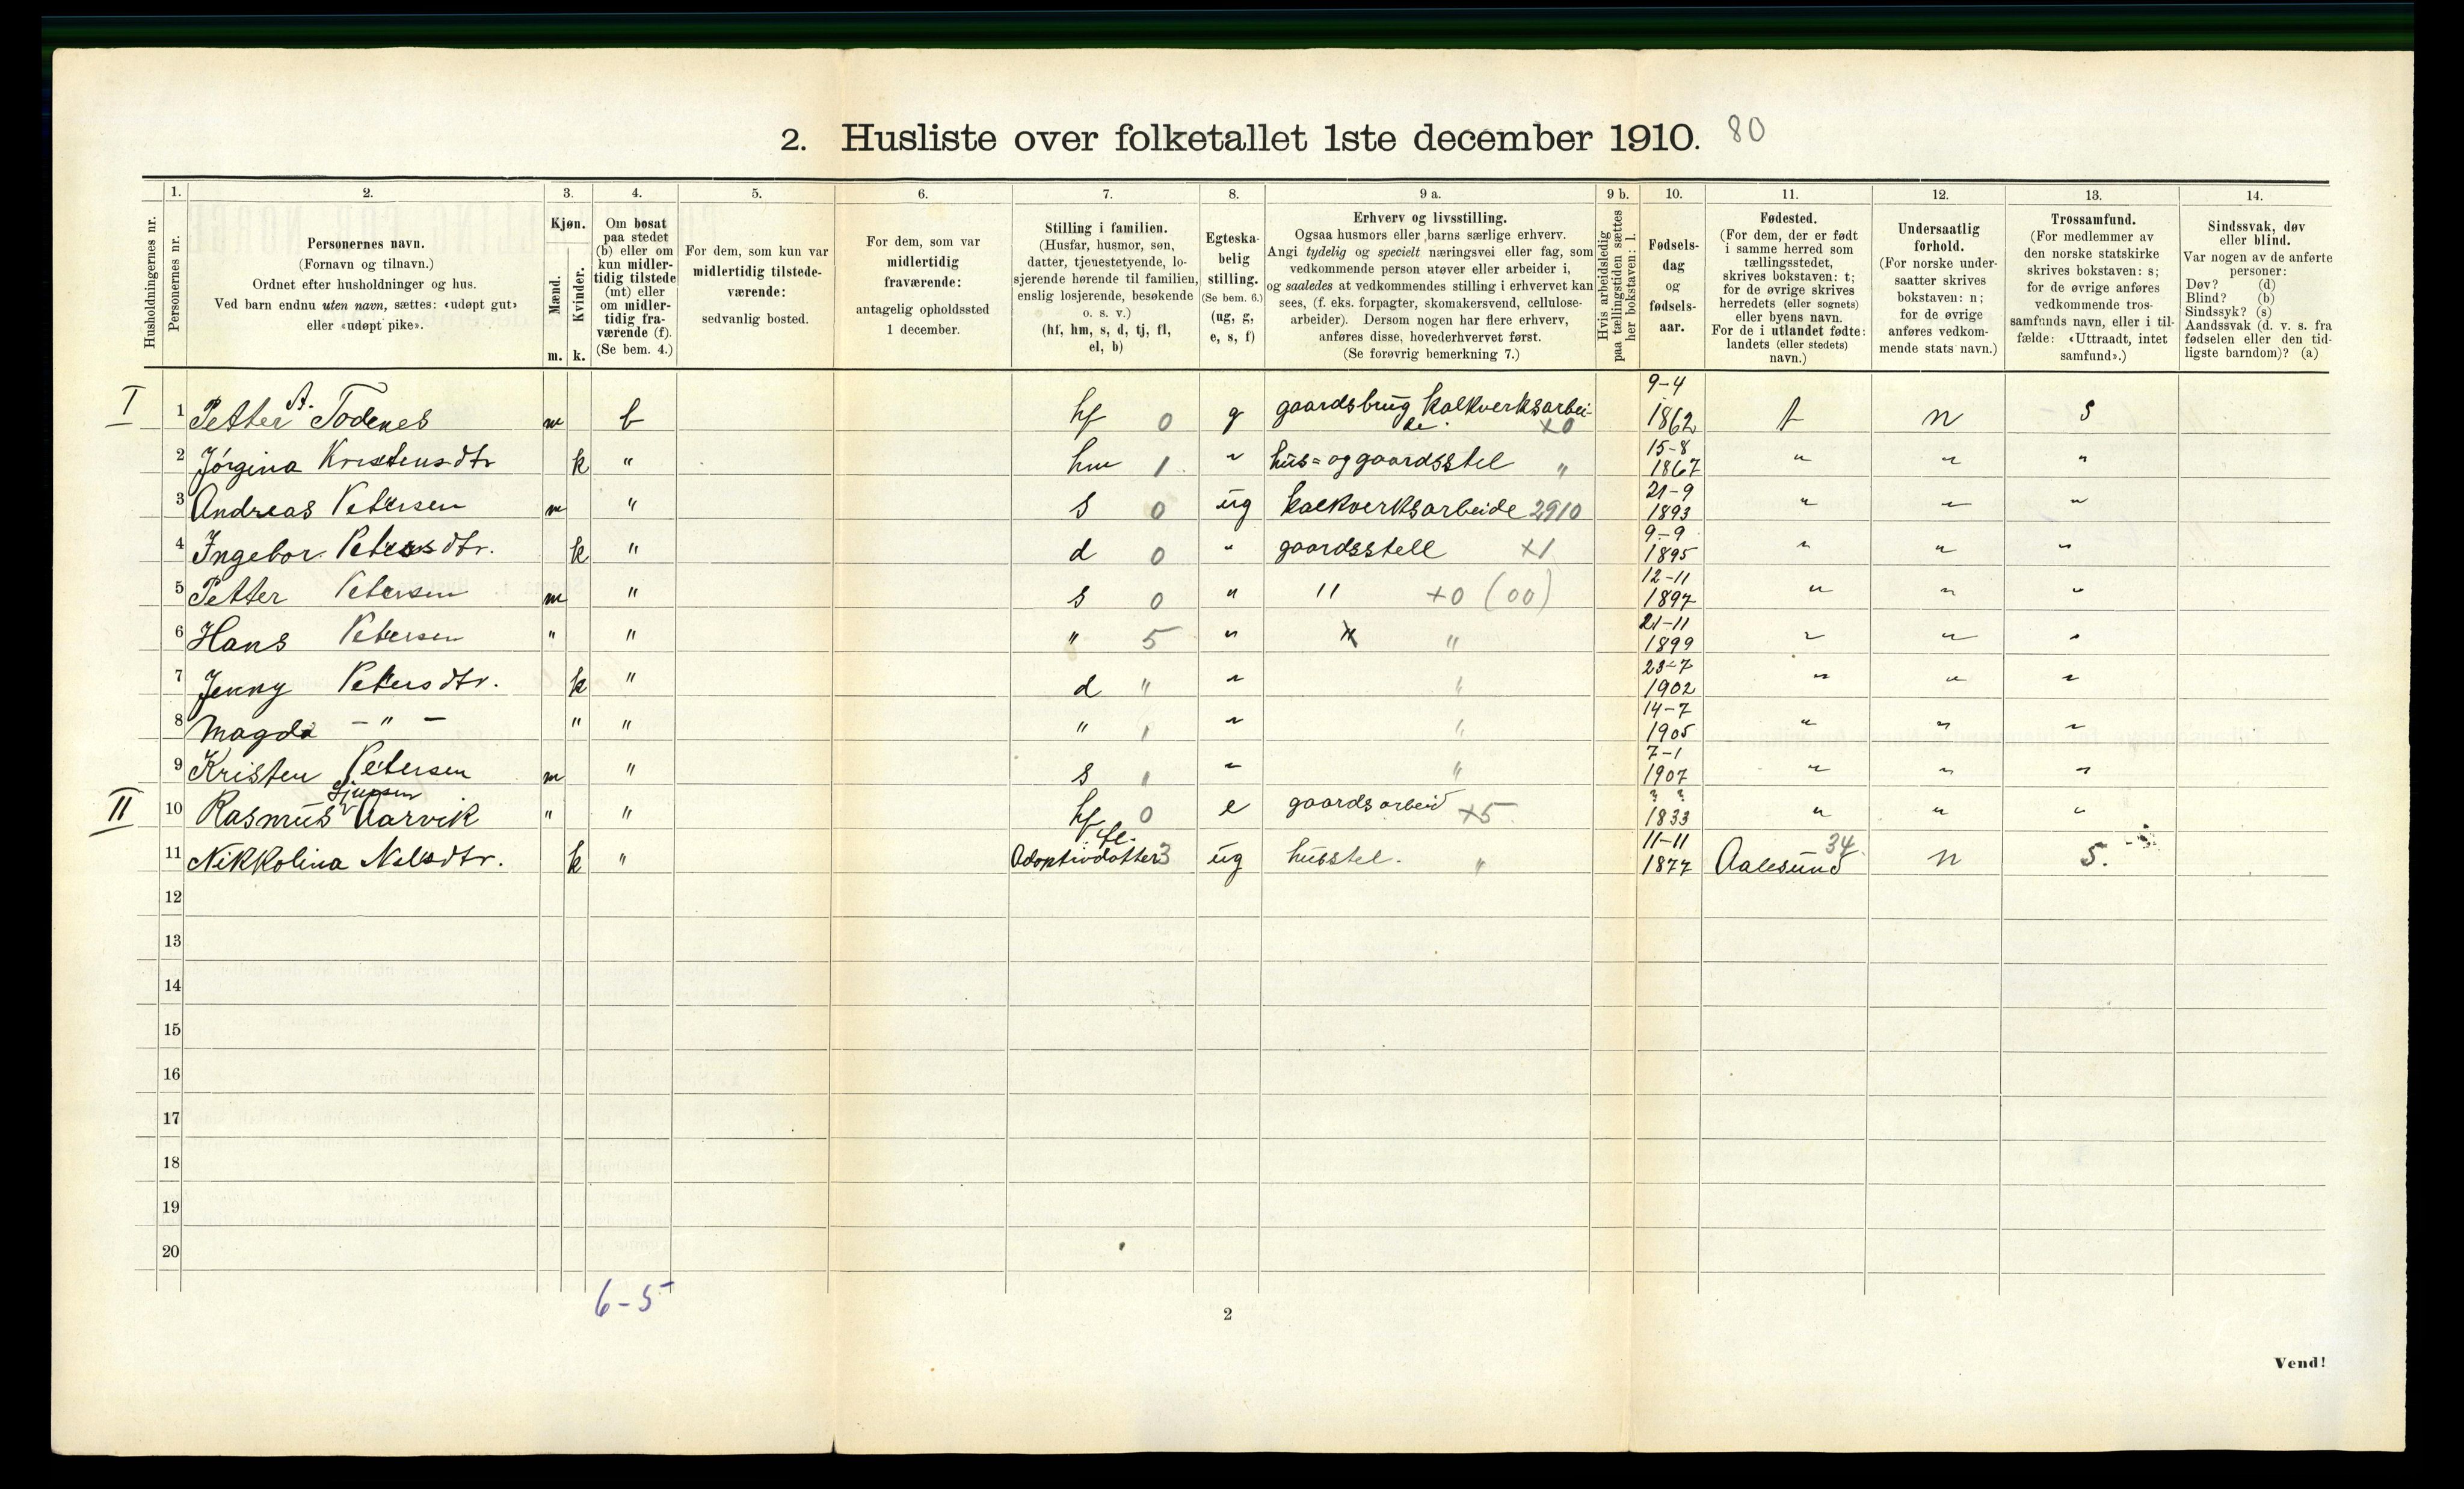 2. Husliste over folketallet 1ste december 1910. 80
1. 2. 3. 4. 5. 6. 7. 8. 9 a. 9 b. 10. 11. 12. 13. 14.
Husholdningernes nr.
Personernes nr.
Personernes navn.
(Fornavn og tilnavn.)
Ordnet efter husholdninger og hus.
Ved barn endnu uten navn, sættes: «udøpt gut»
eller «udøpt pike».
Kjøn.
Mænd.
Kvinder.
m. k.
Om bosat
paa stedet
(b) eller om
kun midler-
tidig tilstede
(mt) eller
om midler-
tidig fra-
værende (f).
(Se bem. 4.)
For dem, som kun var
midlertidig tilstede-
værende:
sedvanlig bosted.
For dem, som var
midlertidig
fraværende:
antagelig opholdssted
1 december.
Stilling i familien.
(Husfar, husmor, søn,
datter, tjenestetyende, lo-
sjerende hørende til familien,
enslig losjerende, besøkende
o. s. v.)
(hf, hm, s, d, tj, fl,
el, b)
Egteska-
belig
stilling.
(Se bem. 6.)
(ug, g,
e, s, f)
Erhverv og livsstilling.
Ogsaa husmors eller barns særlige erhverv.
Angi tydelig og specielt næringsvei eller fag, som
vedkommende person utøver eller arbeider i,
og saaledes at vedkommendes stilling i erhvervet kan
sees, (f. eks. forpagter, skomakersvend, cellulose-
arbeider). Dersom nogen har flere erhverv,
anføres disse, hovederhvervet først.
(Se forøvrig bemerkning 7.)
Hvis arbeidsledig
paa tællingstiden sættes
her bokstaven: l.
Fødsels-
dag
og
fødsels-
aar.
Fødested.
(For dem, der er født
i samme herred som
tællingsstedet,
skrives bokstaven: t;
for de øvrige skrives
herredets (eller sognets)
eller byens navn.
For de i utlandet fødte:
landets (eller stedets)
navn.)
Undersaatlig
forhold.
(For norske under-
saatter skrives
bokstaven: n;
for de øvrige
anføres vedkom-
mende stats navn.)
Trossamfund.
(For medlemmer av
den norske statskirke
skrives bokstaven: s;
for de øvrige anføres
vedkommende tros-
samfunds navn, eller i til-
fælde: «Uttraadt, intet
samfund».)
Sindssvak, døv
eller blind.
Var nogen av de anførte
personer:
Døv? (d)
Blind? (b)
Sindssyk? (s)
Aandssvak (d. v. s. fra
fødselen eller den tid-
ligste barndom)? (a)
I 1 Petter A. Todenes m b hf 0 g gaardsbrug kalkverksarbei-de. x0 9-4 1862 t n s
2 Jørgina Kristensdtr k " hm 1 " hus= og gaardsstel " 15-8 1867 " " "
3 Andreas Petersen m " s 0 ug kalkverksarbeide 2910 21-9 1893 " " "
4 Ingebor Petersdtr. k " d 0 " gaardsstell x1 9-9 1895 " " "
5 Petter Petersen m " s 0 " " x0 (00) 12-11 1897 " " "
6 Hans Petersen " " " 5 " " 21-11 1899 " " "
7 Jenny Petersdtr. k " d " " " 23-7 1902 " " "
8 Magda - " - " " " 1 " " 14-7 1905 " " "
9 Kristen Petersen m " s 1 " " 7-1 1907 " " "
II 10 Rasmus Aarvik " " hf 0 e gaardsarbeid x5 ? ? 1833 " " "
11 Nikkolina Nelsdtr. k " fl. Adoptivdatter 3 ug husstel. " 11-11 1877 Aalesund 34 n s.
12
13
14
15
16
17
18
19
20
6-5
2
Vend!